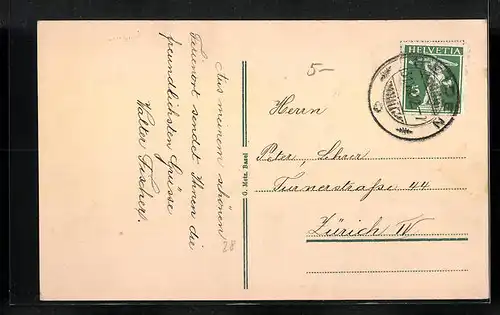 Aus meinem schönen
Ferienort sendet Ihnen die
freundlichsten Grüsse
Walter Fischer.
G. Metz, Basel
5-
HELVETIA
5
Herrn
Peter, Lehrer
Turnerstraße 44
Zürich IV